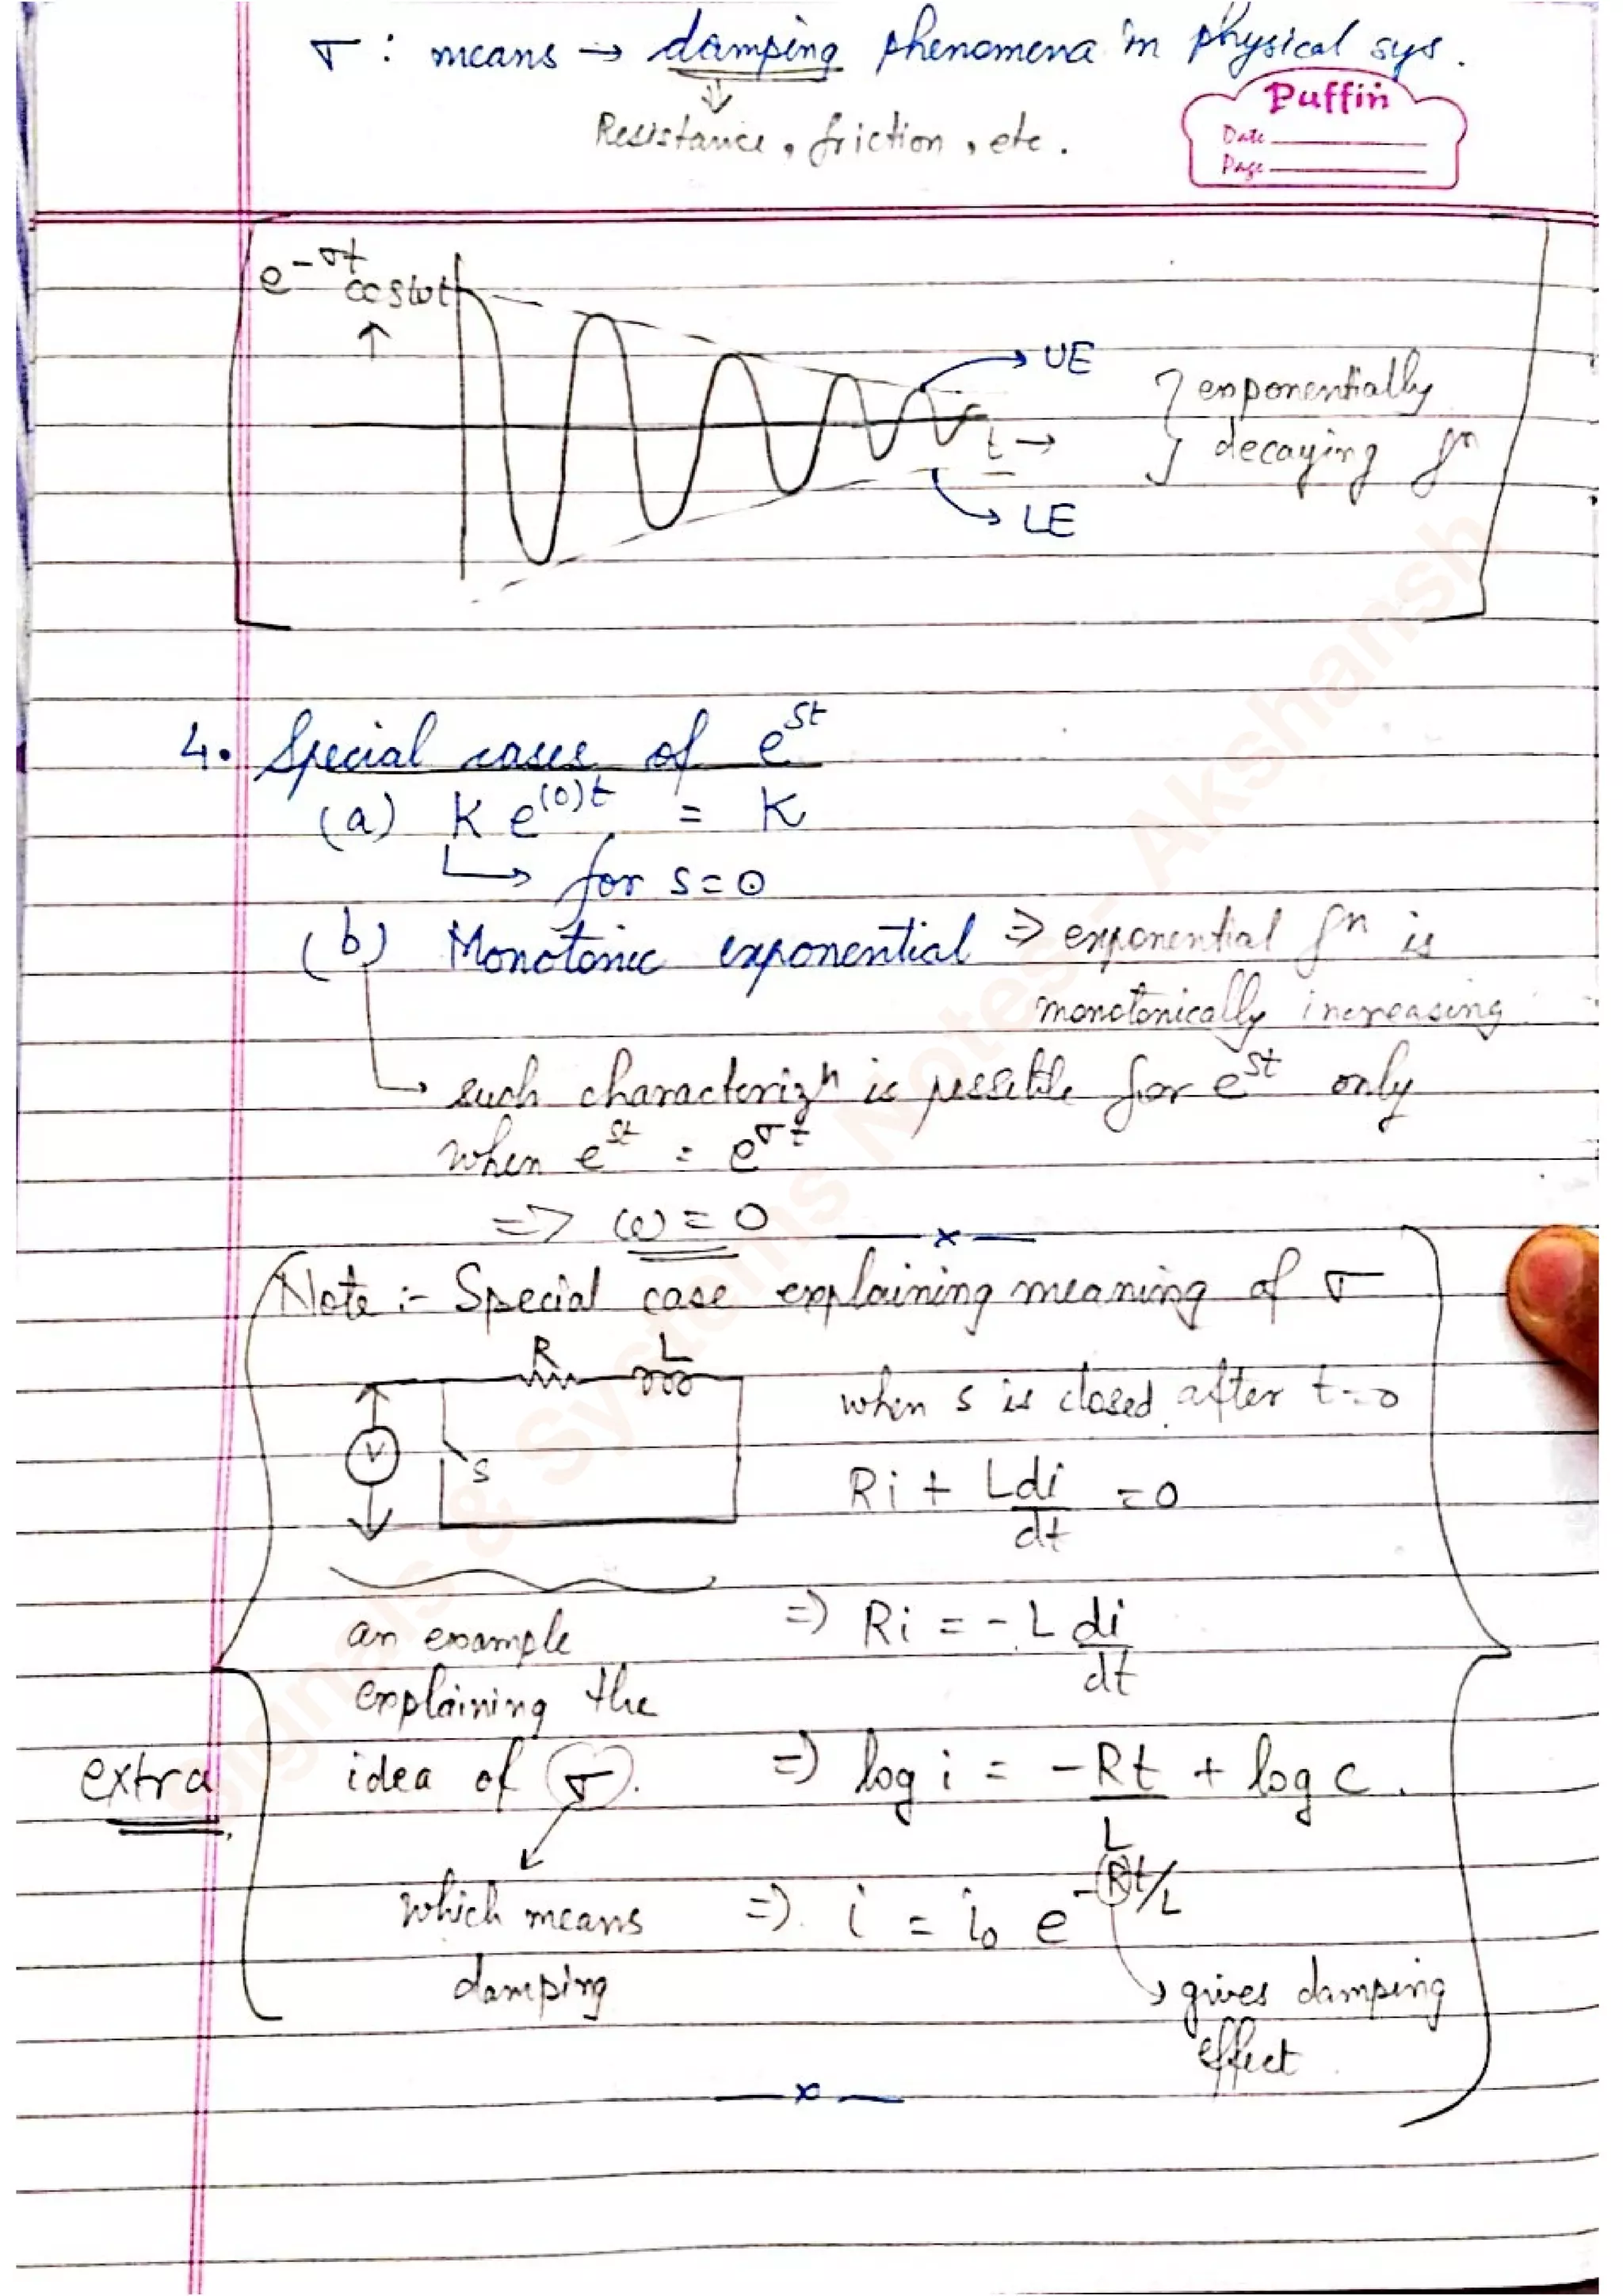 σ : means → damping phenomena in physical sys.
Resistance, friction, etc.
Puffin
Date
Page
e^{-σt} cos ωt
↑
UE
} exponentially
decaying fⁿ
t →
LE
4. Special cases of e^{st}
(a) K e^{(0)t} = K
↳ for s=0
(b) Monotonic exponential ⇒ exponential fⁿ is
monotonically increasing
↳ such characterizⁿ is possible for e^{st} only
when e^{st} = e^{σt}
=> ω = 0
x
Note :- Special case explaining meaning of σ
R L
V
S
when s is closed after t=0
Ri + L di/dt = 0
=) Ri = - L di/dt
an example
explaining the
idea of σ.
=) log i = -Rt/L + log c.
extra
which means
damping
=). i = i₀ e^{-Rt/L}
gives damping
effect
x
Signals & Systems Notes - Akshansh